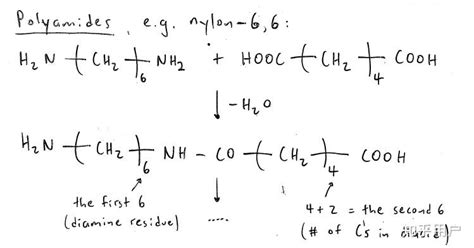 Polyamides, e.g. nylon-6,6:
H₂N-(CH₂)₆-NH₂ + HOOC-(CH₂)₄-COOH
↓-H₂O
H₂N-(CH₂)₆-NH-CO-(CH₂)₄-COOH
the first 6
(diamine residue)
.....
4+2 = the second 6
(# of C's in diacid)
知乎用户